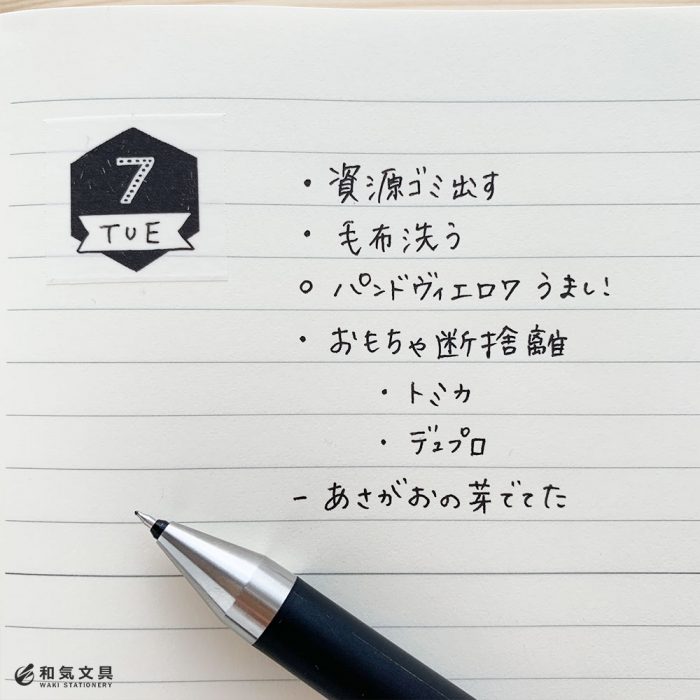 7
TUE
・資源ゴミ出す
・毛布洗う
○ パンドヴィエロワ うまし!
・おもちゃ断捨離
・トミカ
・デュプロ
- あさがおの芽でてた
和気文具
WAKI STATIONERY